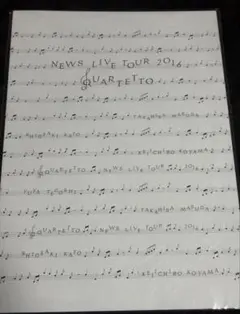 NEWS LIVE TOUR 2016
QUARTETTO
TAKAHISA MASUDA
SHIGEAKI KATO
KEIICHIRO KOYAMA
QUARTETTO NEWS LIVE TOUR 2016
YUYA TEGOSHI TAKAHISA MASUDA
QUARTETTO NEWS LIVE TOUR 2016
SHIGEAKI KATO KEIICHIRO KOYAMA